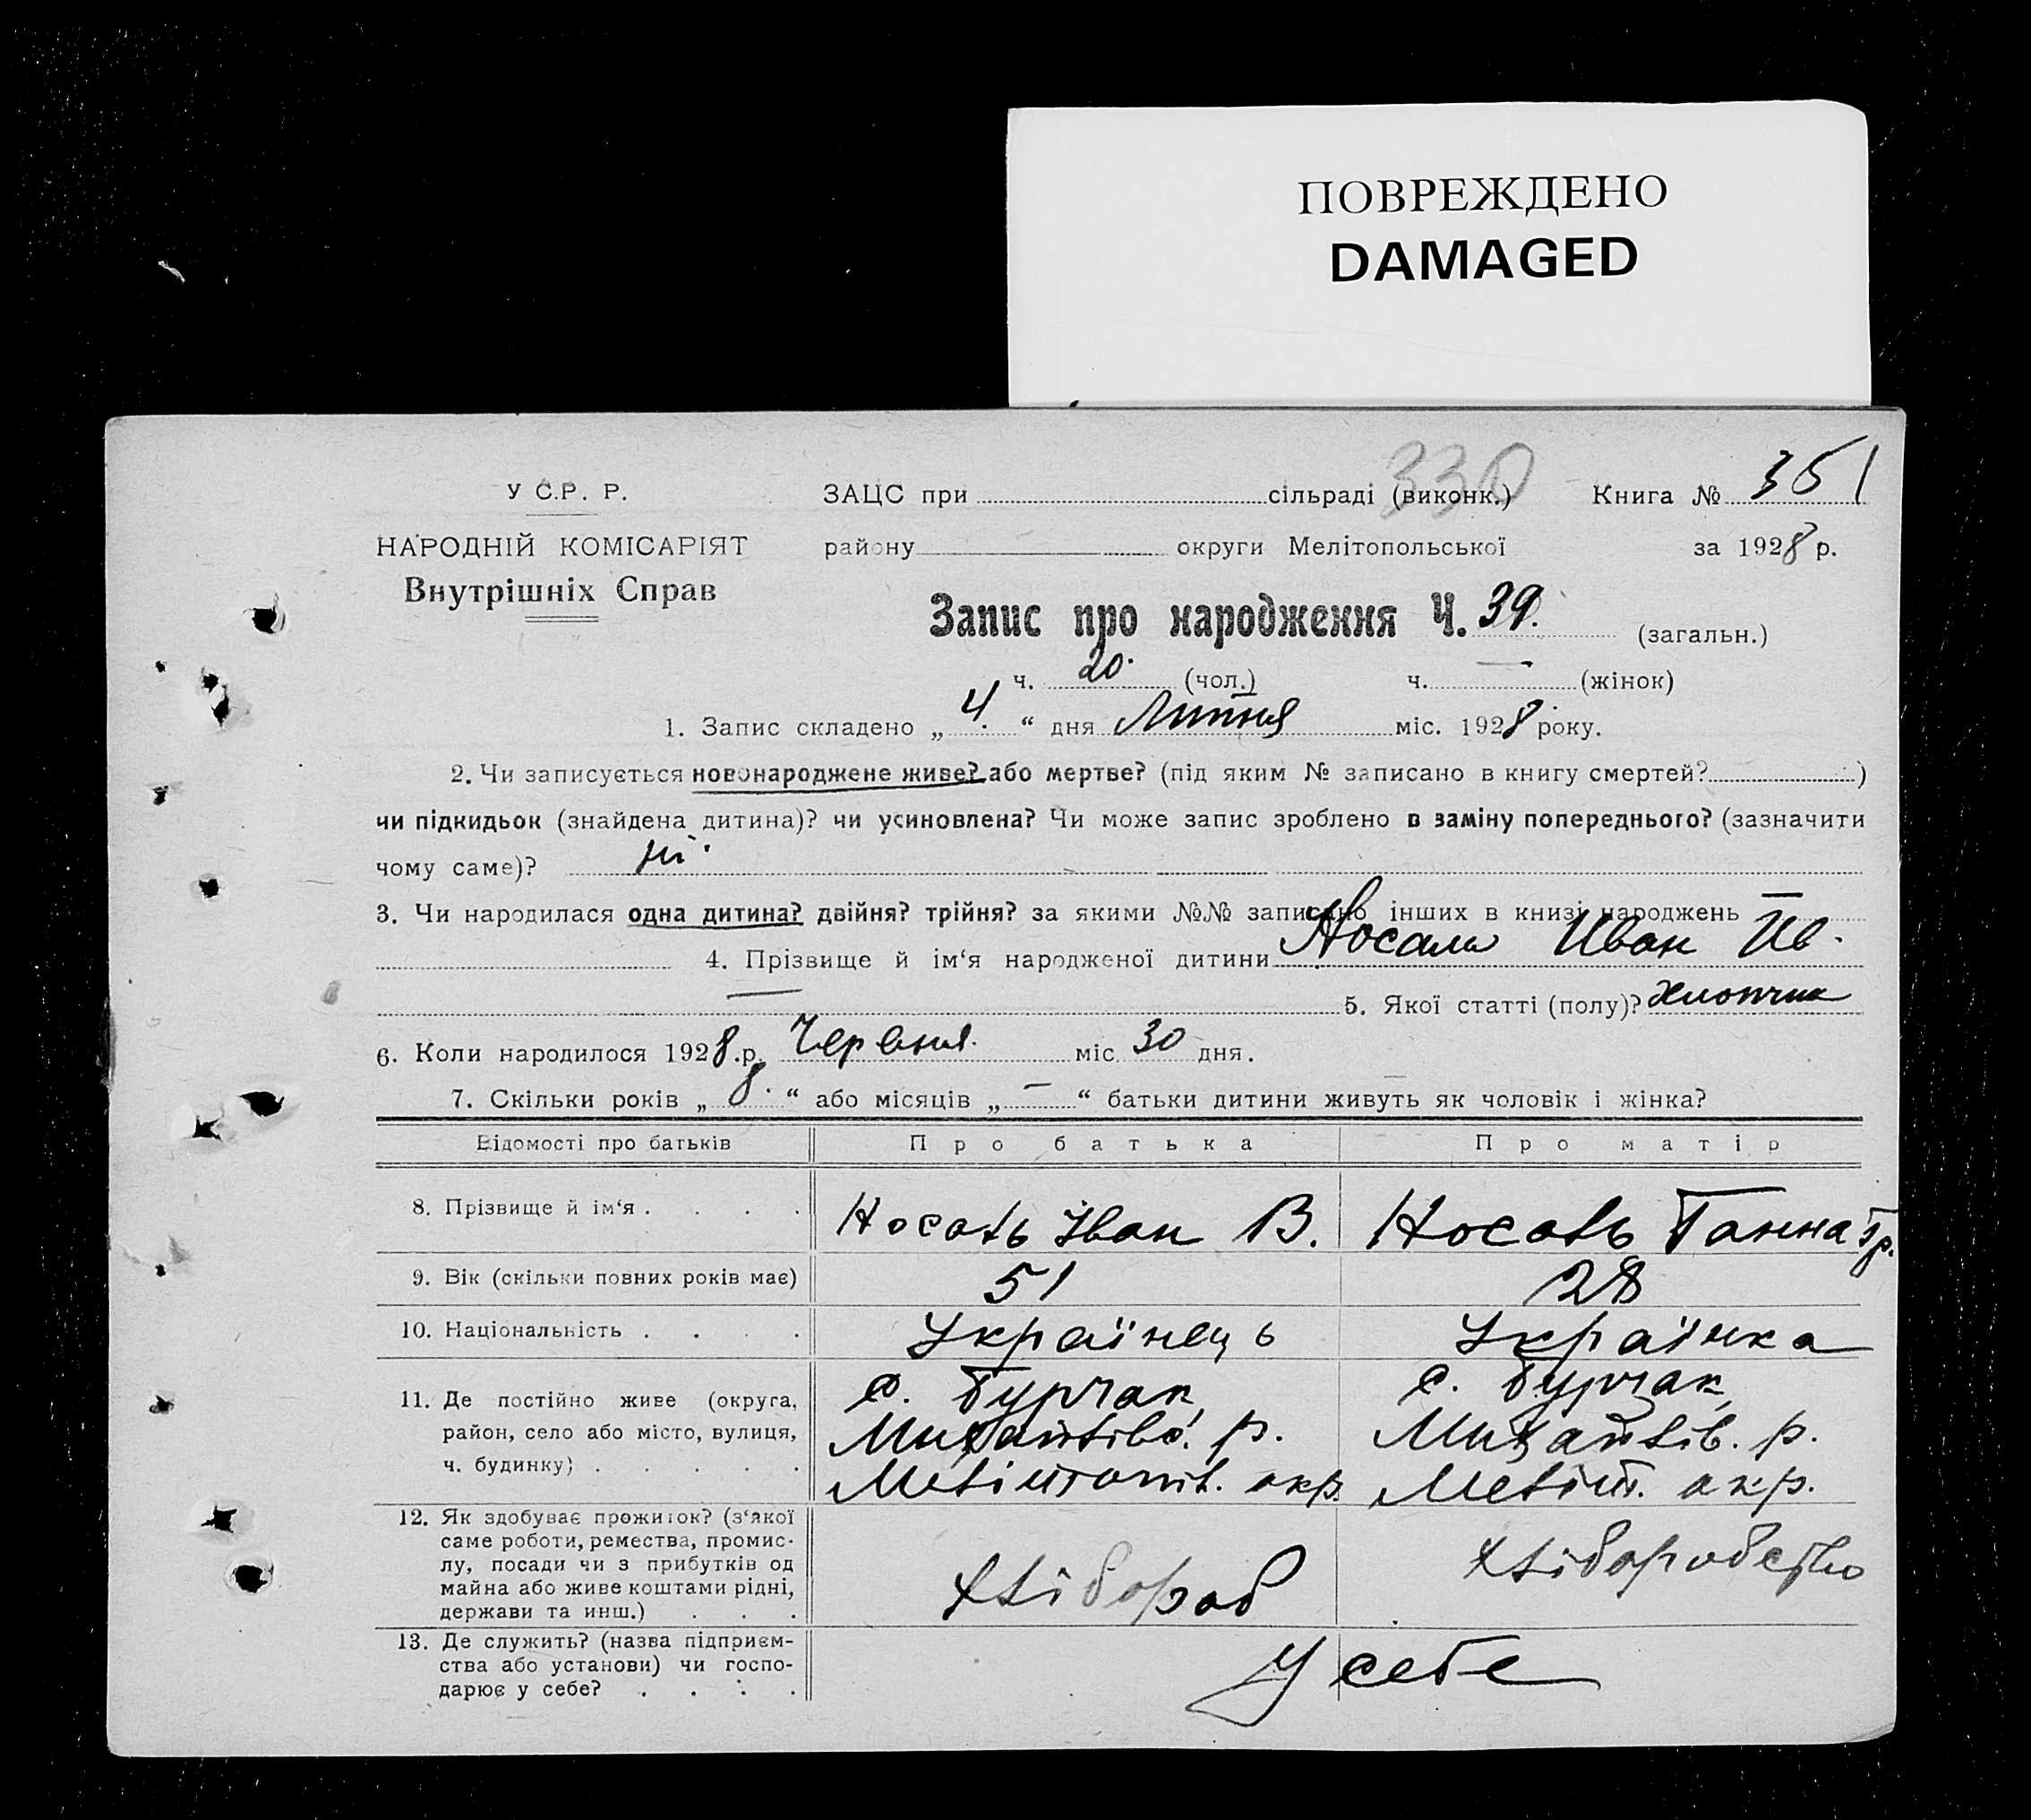 ПОВРЕЖДЕНО
DAMAGED
330
У С.Р. Р.
ЗАЦС при сільраді (виконк.) Книга № 351
НАРОДНІЙ КОМІСАРІЯТ
району округи Мелітопольської за 1928 р.
Внутрішніх Справ
Запис про народження Ч. 39. (загальн.)
ч. 20. (чол.) ч. — (жінок)
1. Запис складено „ 4. “ дня Липня міс. 1928 року.
2. Чи записується новонароджене живе? або мертве? (під яким № записано в книгу смертей? )
чи підкидьок (знайдена дитина)? чи усиновлена? Чи може запис зроблено в заміну попереднього? (зазначити
чому саме)? ні.
3. Чи народилася одна дитина? двійня? трійня? за якими №№ записано інших в книзі народжень —
4. Прізвище й ім‘я народженої дитини Носаль Иван Ив.
— 5. Якої статті (полу)? хлопчик
6. Коли народилося 1928.р. Червня міс. 30 дня.
7. Скільки років „ 8. “ або місяців „ — “ батьки дитини живуть як чоловік і жінка?
Відомості про батьків Про батька Про матір
8. Прізвище й ім‘я . . . . Носаль Іван В. Носаль Ганна Гр.
9. Вік (скільки повних років має) 51 28
10. Національність . . . . Українець Українка
11. Де постійно живе (округа, с. Бурчак с. Бурчак,
район, село або місто, вулиця, Михайлів. р. Михайлів. р.
ч. будинку) . . . . . Мелітопіл. окр. Меліт. окр.
12. Як здобуває прожиток? (з‘якої
саме роботи, ремества, промис-
лу, посади чи з прибутків од
майна або живе коштами рідні, Хлібороб Хліборобство
держави та инш.) . . .
13. Де служить? (назва підприєм-
ства або установи) чи госпо- У себе
дарює у себе? . . . .